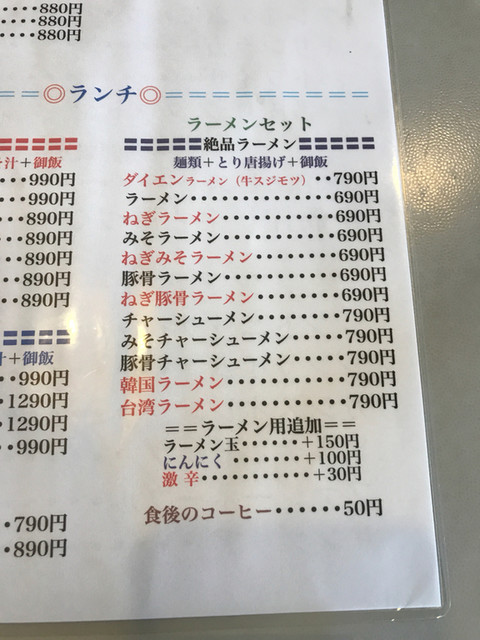 ・・・・880円
・・・・880円
・・・・880円
＝＝◎ランチ◎＝＝＝＝＝＝＝＝＝
ラーメンセット
〓〓〓〓〓絶品ラーメン〓〓〓〓〓
麺類＋とり唐揚げ＋御飯
ダイエンラーメン（牛スジモツ）・・790円
ラーメン・・・・・・・・・・・・690円
ねぎラーメン・・・・・・・・・690円
みそラーメン・・・・・・・・・690円
ねぎみそラーメン・・・・・・690円
豚骨ラーメン・・・・・・・・・690円
ねぎ豚骨ラーメン・・・・・・690円
チャーシューメン・・・・・・790円
みそチャーシューメン・・・790円
豚骨チャーシューメン・・・790円
韓国ラーメン・・・・・・・・・790円
台湾ラーメン・・・・・・・・・790円
＝＝ラーメン用追加＝＝
ラーメン玉・・・・・・＋150円
にんにく・・・・・・・＋100円
激辛・・・・・・・・・・＋30円
食後のコーヒー・・・・・・50円
汁＋御飯
・・・990円
・・・990円
・・・890円
・・・890円
・・・890円
・・・890円
・・・890円
汁＋御飯
・・990円
・1290円
・1290円
・・990円
・・790円
・・890円